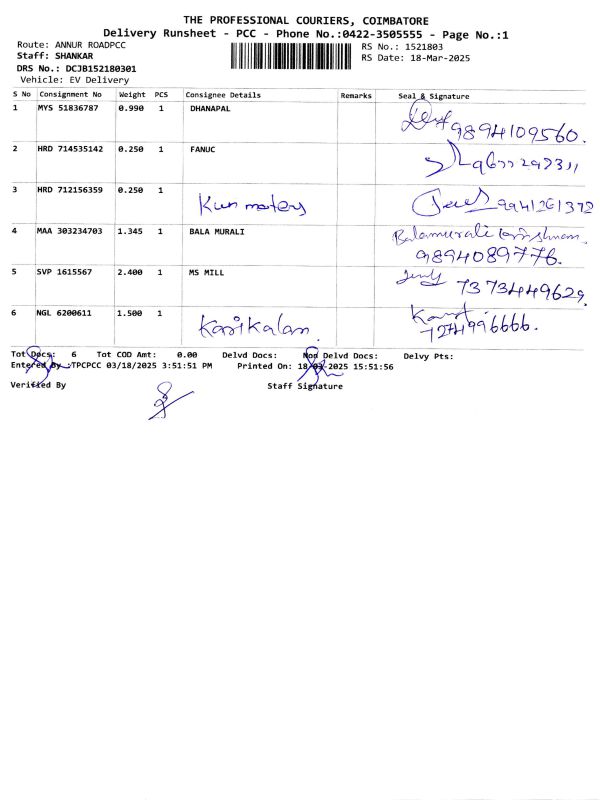 THE PROFESSIONAL COURIERS, COIMBATORE
Delivery Runsheet - PCC - Phone No.:0422-3505555 - Page No.:1
Route: ANNUR ROADPCC RS No.: 1521803
Staff: SHANKAR RS Date: 18-Mar-2025
DRS No.: DCJB152180301
Vehicle: EV Delivery
S No Consignment No Weight PCS Consignee Details Remarks Seal & Signature
1 MYS 51836787 0.990 1 DHANAPAL 9894109560.
2 HRD 714535142 0.250 1 FANUC
3 HRD 712156359 0.250 1 Kun moters 9941261372
4 MAA 303234703 1.345 1 BALA MURALI Balamurali 9894089776.
5 SVP 1615567 2.400 1 MS MILL 7373449629.
6 NGL 6200611 1.500 1 Karikalan.
Tot Docs: 6 Tot COD Amt: 0.00 Delvd Docs: Non Delvd Docs: Delvy Pts:
Entered By :TPCPCC 03/18/2025 3:51:51 PM Printed On: 18-03-2025 15:51:56
Verified By Staff Signature